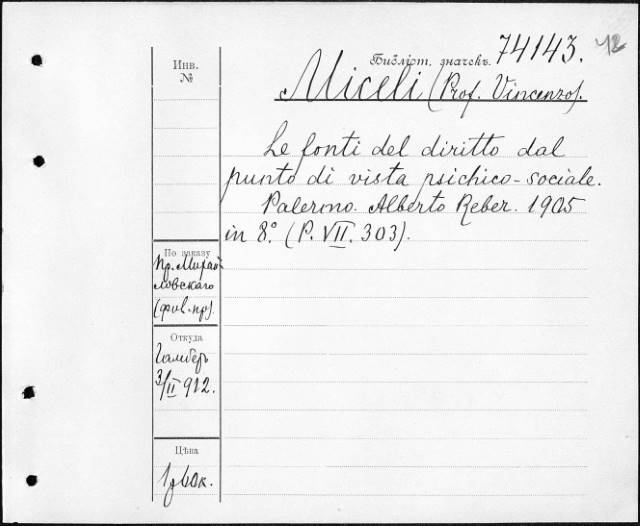 Библіот. значекъ. 74143.
Инв.
№
Miceli (Prof. Vincenzo).
Le fonti del diritto dal
punto di vista psichico-sociale.
Palermo. Alberto Reber. 1905
in 8º. (P. VII. 303).
По заказу
Пр. Михай-
ловскаго
Откуда
3/II 912.
Цѣна
1р 60к.